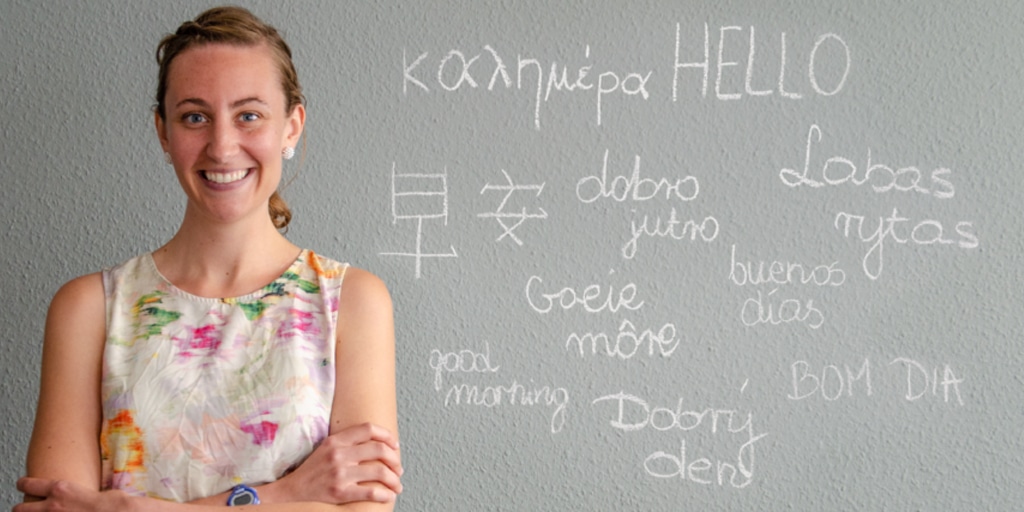 καλημέρα HELLO
早安
dobro
jutro
Labas
rytas
buenos
días
Goeie
môre
good
morning
BOM DIA
Dobrý
den